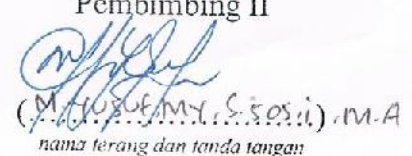 Pembimbing II
(M. Yusuf. MY. S.Sos.i), M.A
nama terang dan tanda tangan